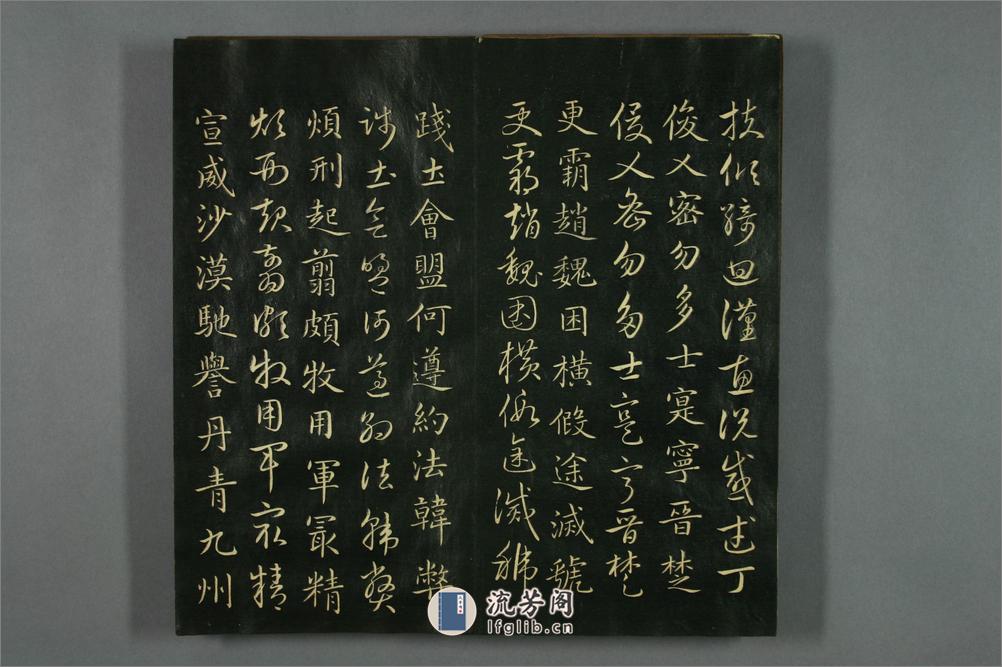 扶傾綺迴漢惠說感武丁
俊乂密勿多士寔寧晉楚
俊乂密勿多士寔寧晉楚
更霸趙魏困橫假途滅虢
更霸趙魏困橫假途滅虢
踐土會盟何遵約法韓弊
踐土會盟何遵約法韓弊
煩刑起翦頗牧用軍冣精
煩刑起翦頗牧用軍冣精
宣威沙漠馳譽丹青九州
流芳阁
lfglib.cn